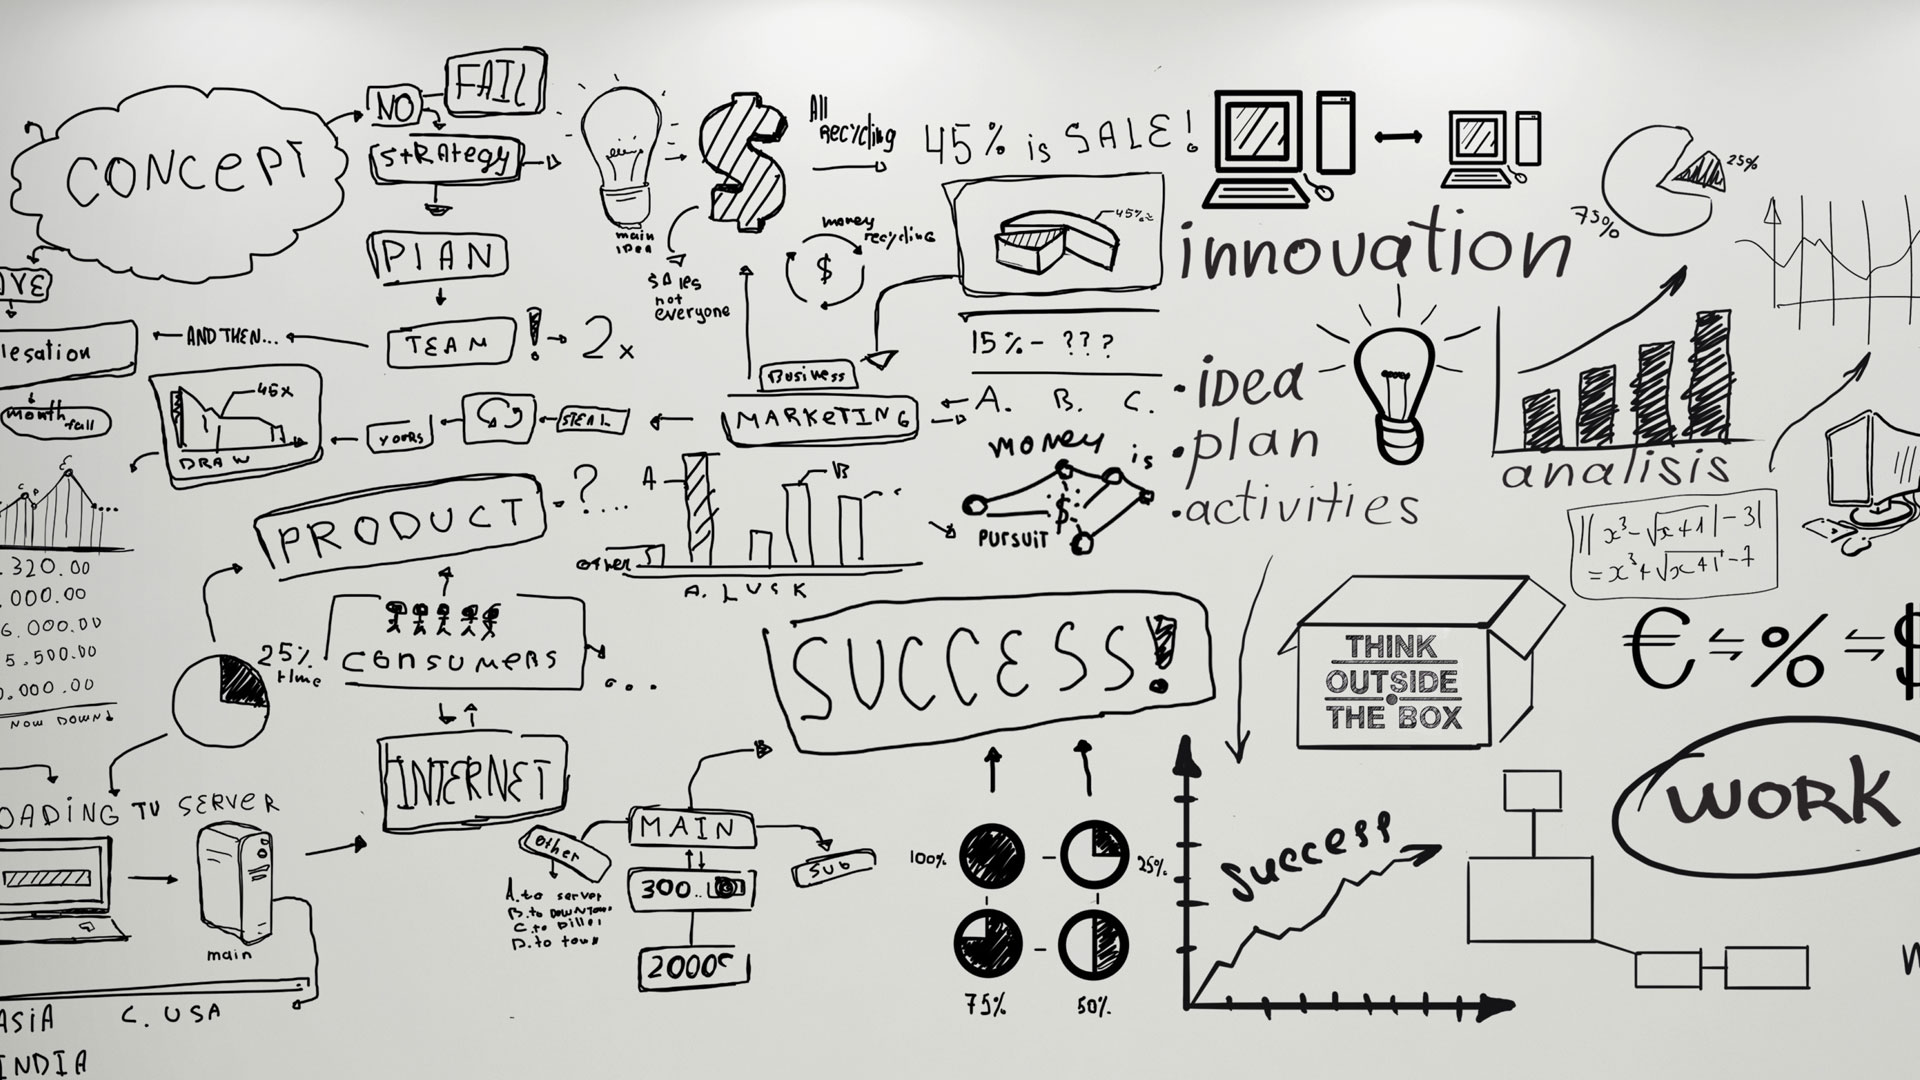 CONCEPT
NO
FAIL
StRAtegy
PLAN
TEAM
! 2x
AND THEN...
lesation
month
fall
45x
DRAW
yours
main
idea
sales
not
everyone
All
Recycling
money
recycling
$
45% is SALE!
45%
15% - ???
A. B. C.
Business
MARKETING
money is
$
PURSUIT
PRODUCT
- ?....
A
B
other
A. LUSK
.320.00
.000.00
6.000.00
5.500.00
0.000.00
NOW DOWN
25%
time
CONSUMERS
...
INTERNET
OADING TV SERVER
main
ASIA
C. USA
INDIA
SUCCESS!
MAIN
other
SUB
A. to server
C. to biller
D. to town
300..
100%
25%
75%
50%
innovation
• idea
• plan
• activities
75%
25%
analisis
|| x³ - √x+1 | - 3|
= x³ + √x+1 - 7
THINK
OUTSIDE
THE BOX
€ ⇋ % ⇋ $
WORK
success